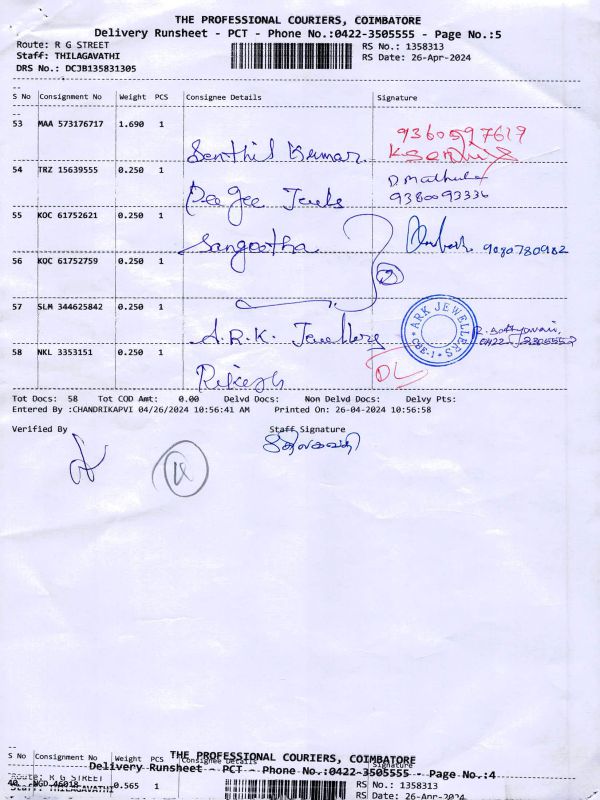 THE PROFESSIONAL COURIERS, COIMBATORE
Delivery Runsheet - PCT - Phone No.:0422-3505555 - Page No.:5
Route: R G STREET RS No.: 1358313
Staff: THILAGAVATHI RS Date: 26-Apr-2024
DRS No.: DCJB135831305
S No Consignment No Weight PCS Consignee Details Signature
53 MAA 573176717 1.690 1 Senthil Kumar 9360597619
54 TRZ 15639555 0.250 1 Dee Jee Jewels D Mathula 9380093336
55 KOC 61752621 0.250 1 Sangeetha 9080780982
56 KOC 61752759 0.250 1 2
57 SLM 344625842 0.250 1 A.R.K. Jewellery ARK JEWELLERS CBE-1
58 NKL 3353151 0.250 1 Rikesh DL
Tot Docs: 58 Tot COD Amt: 0.00 Delvd Docs: Non Delvd Docs: Delvy Pts:
Entered By :CHANDRIKAPVI 04/26/2024 10:56:41 AM Printed On: 26-04-2024 10:56:58
Verified By Staff Signature
THE PROFESSIONAL COURIERS, COIMBATORE
S No Consignment No Weight PCS Consignee Details Signature
Delivery Runsheet - PCT - Phone No.:0422-3505555 - Page No.:4
Route: R G STREET RS No.: 1358313
40 NGD 46018 0.565 1
Staff: THILAGAVATHI RS Date: 26-Apr-2024